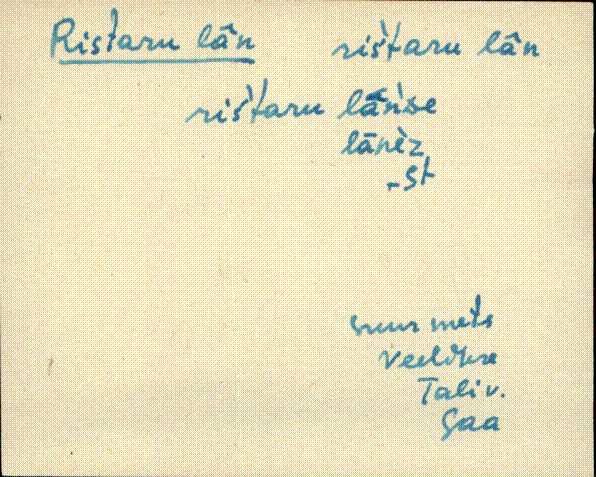 Ristaru lân   rištaru lân
rištaru lânse
lānèz
-st
suur mets
Veeldkse
Taliv.
Gaa